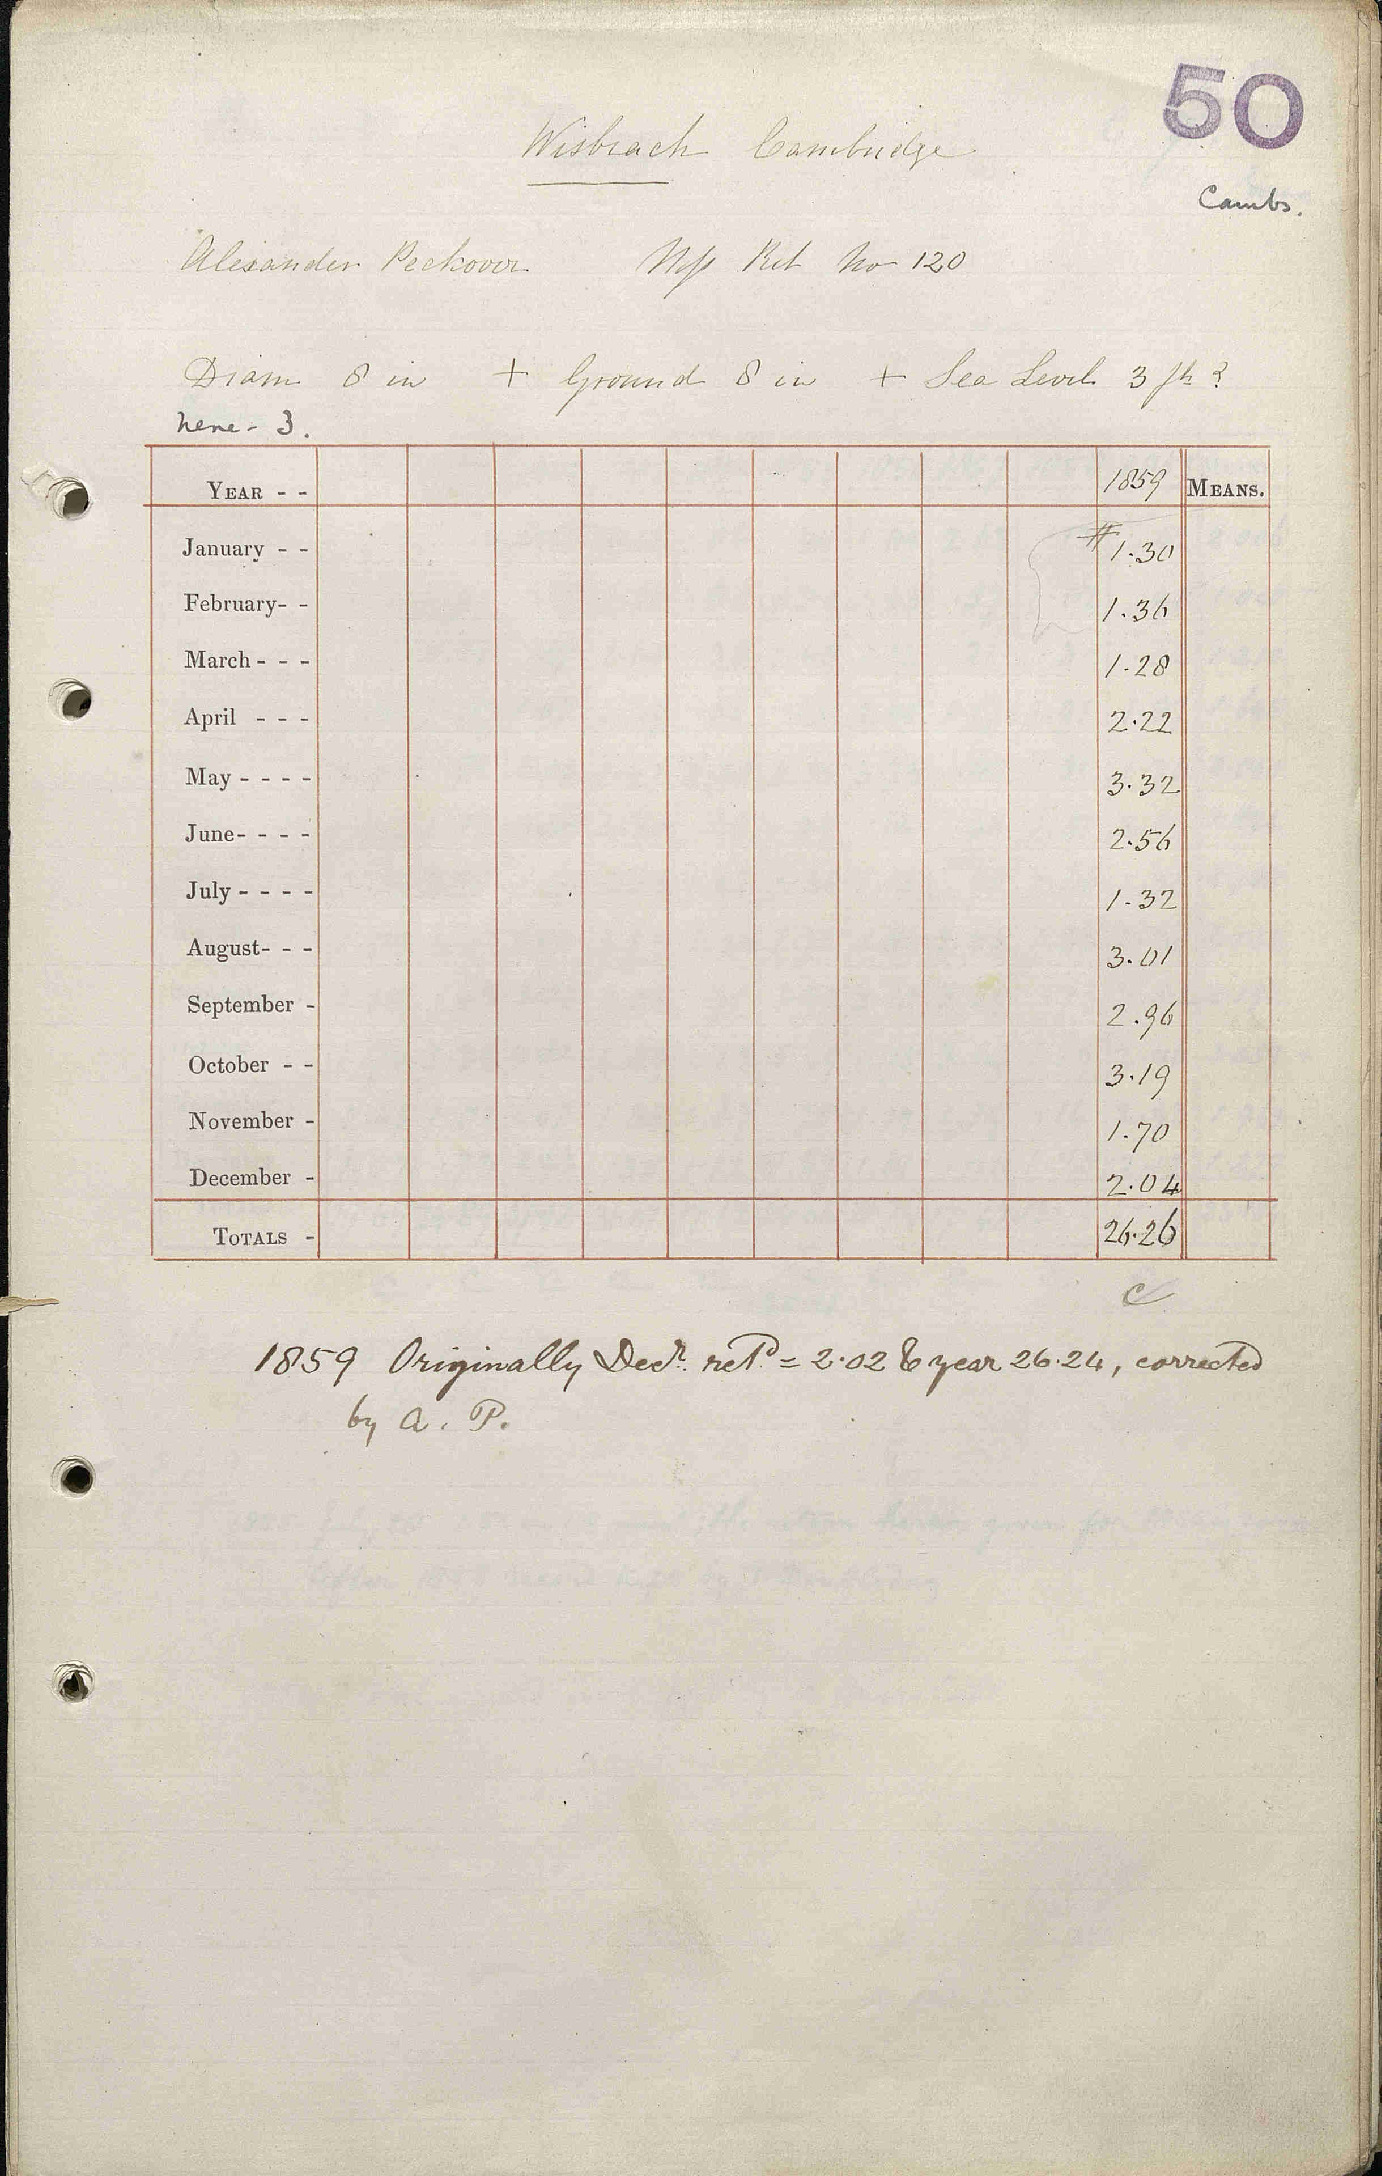 50
Wisbeach Cambridge
Cambs.
Alexander Peckover Mss Ret No 120
Diam 8 in + Ground 8 in + Sea Level 3 ft ?
Nene - 3.
YEAR - - 1859 MEANS.
January - - #1.30
February- - 1.36
March - - - 1.28
April - - - 2.22
May - - - - 3.32
June- - - - 2.56
July - - - - 1.32
August- - - 3.01
September - 2.96
October - - 3.19
November - 1.70
December - 2.04
TOTALS - 26.26
c
1859 Originally Decr. retd. = 2.02 & year 26.24, corrected
by A. P.